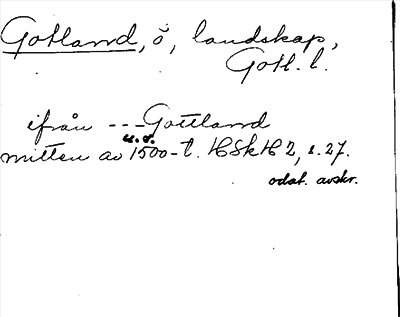 Gotland, ö, landskap,
Gotl. l.
ifrån --- Gottland
u.o.
mitten av 1500-t. HSkH 2, s. 27.
odat. avskr.